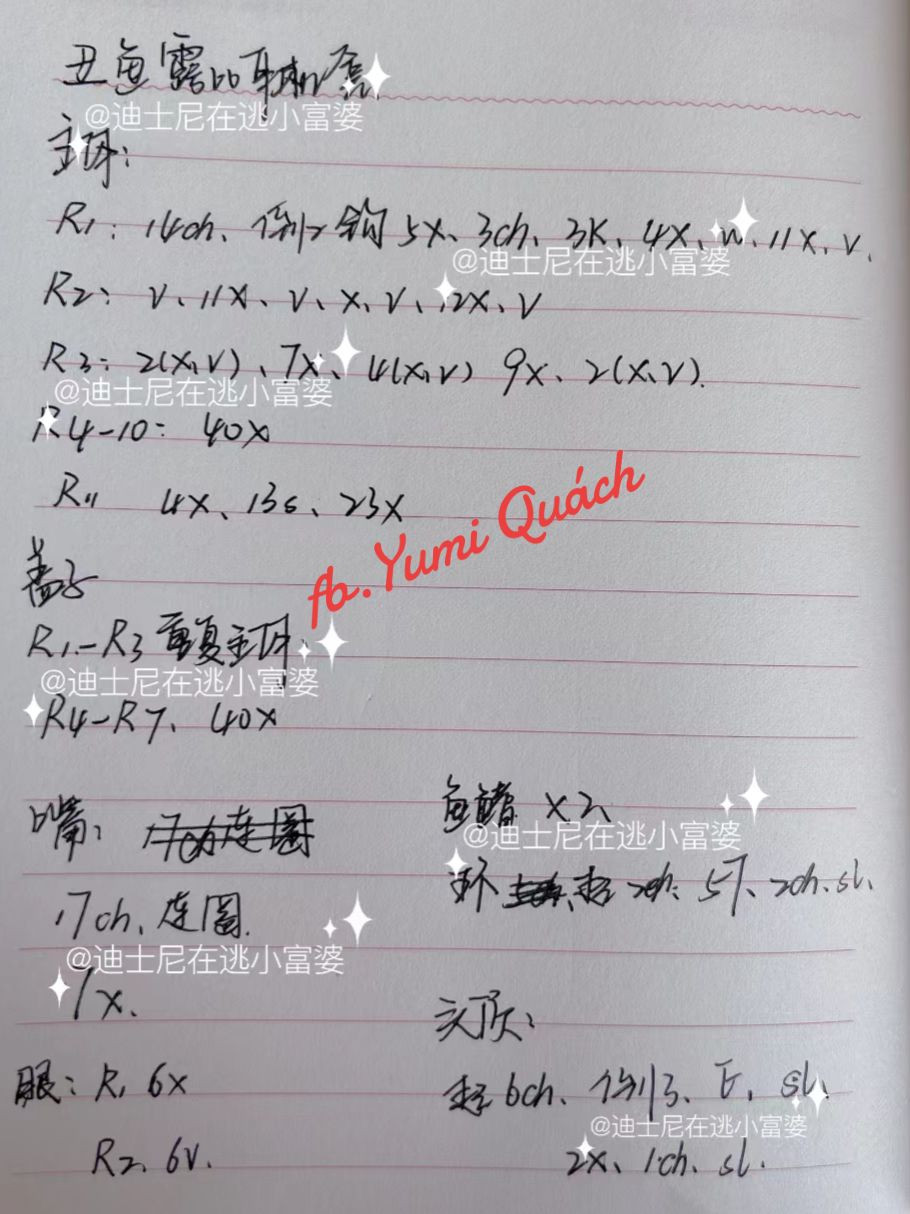 丑鱼露比耳机壳
@迪士尼在逃小富婆
主体:
R1: 14ch、倒2钩5X、3ch、3X、4X、w、11X、V.
@迪士尼在逃小富婆
R2: V、11X、V、X、V、12X、V
R3: 2(X,V)、7X、4(X,V) 9X、2(X,V).
@迪士尼在逃小富婆
R4-10: 40X
R11 4X、13s、23X
fb.Yumi Quách
盖子
R1-R3重复主体.
@迪士尼在逃小富婆
R4-R7、40X
嘴:
17ch、连圈.
@迪士尼在逃小富婆
17X.
眼: R1 6X
R2、6V.
鱼鳍 X2
@迪士尼在逃小富婆
环起2ch: 5T、2ch.sl.
头顶:
起6ch、倒3、F、sl.
@迪士尼在逃小富婆
2X、1ch、sl.